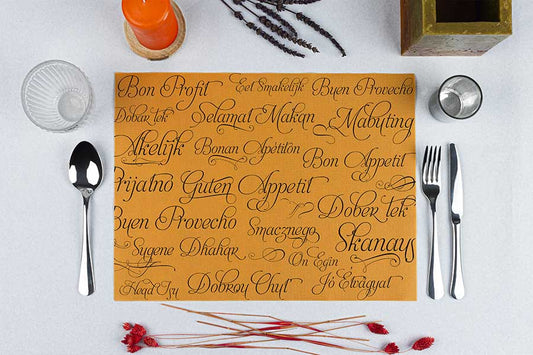 Bon Profit Eet Smakelijk Buen Provecho
Dobar tek Selamat Makan Mabuting
Akelijk Bonan Apetiton Bon Appetit
Prijatno Guten Appetit
Buen Provecho Dober tek
Smacznego Skanays
Sygene Dhahar On Egin
Dobrou Chut' Jó Étvágyat